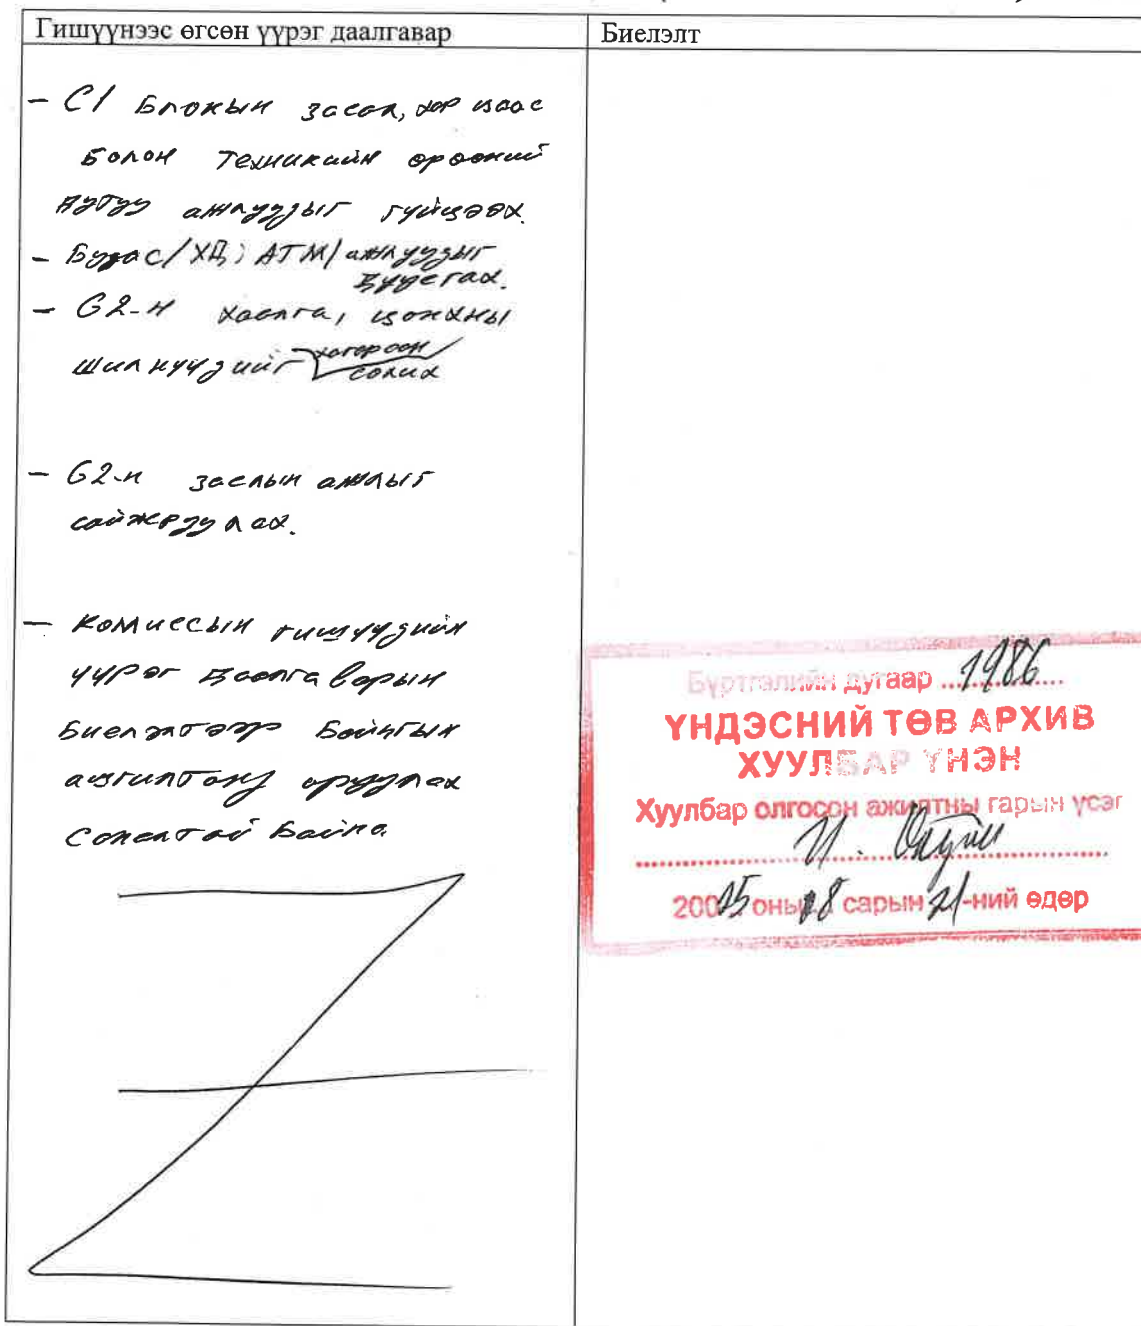 Гишүүнээс өгсөн үүрэг даалгавар
Биелэлт
- C1 Блокын засал, хар цаас
болон техникийн өрөөний
дутуу ажлуудыг гүйцээх.
- Будас/ХД; АТМ/ажлуудыг
дуусгах.
- G2-н хаалга, цонхны
шилнүүдийг хагарсан
солих
- G2-н заслын ажлыг
сайжруулах.
- Комиссын гишүүдийн
үүрэг даалгаварын
биелэлтээр байнгын
ашгилтанд оруулах
саналтай байна
Бүртгэлийн дугаар 1986
ҮНДЭСНИЙ ТӨВ АРХИВ
ХУУЛБАР ҮНЭН
Хуулбар олгосон ажилтны гарын үсэг
2025 оны 8 сарын 21-ний өдөр